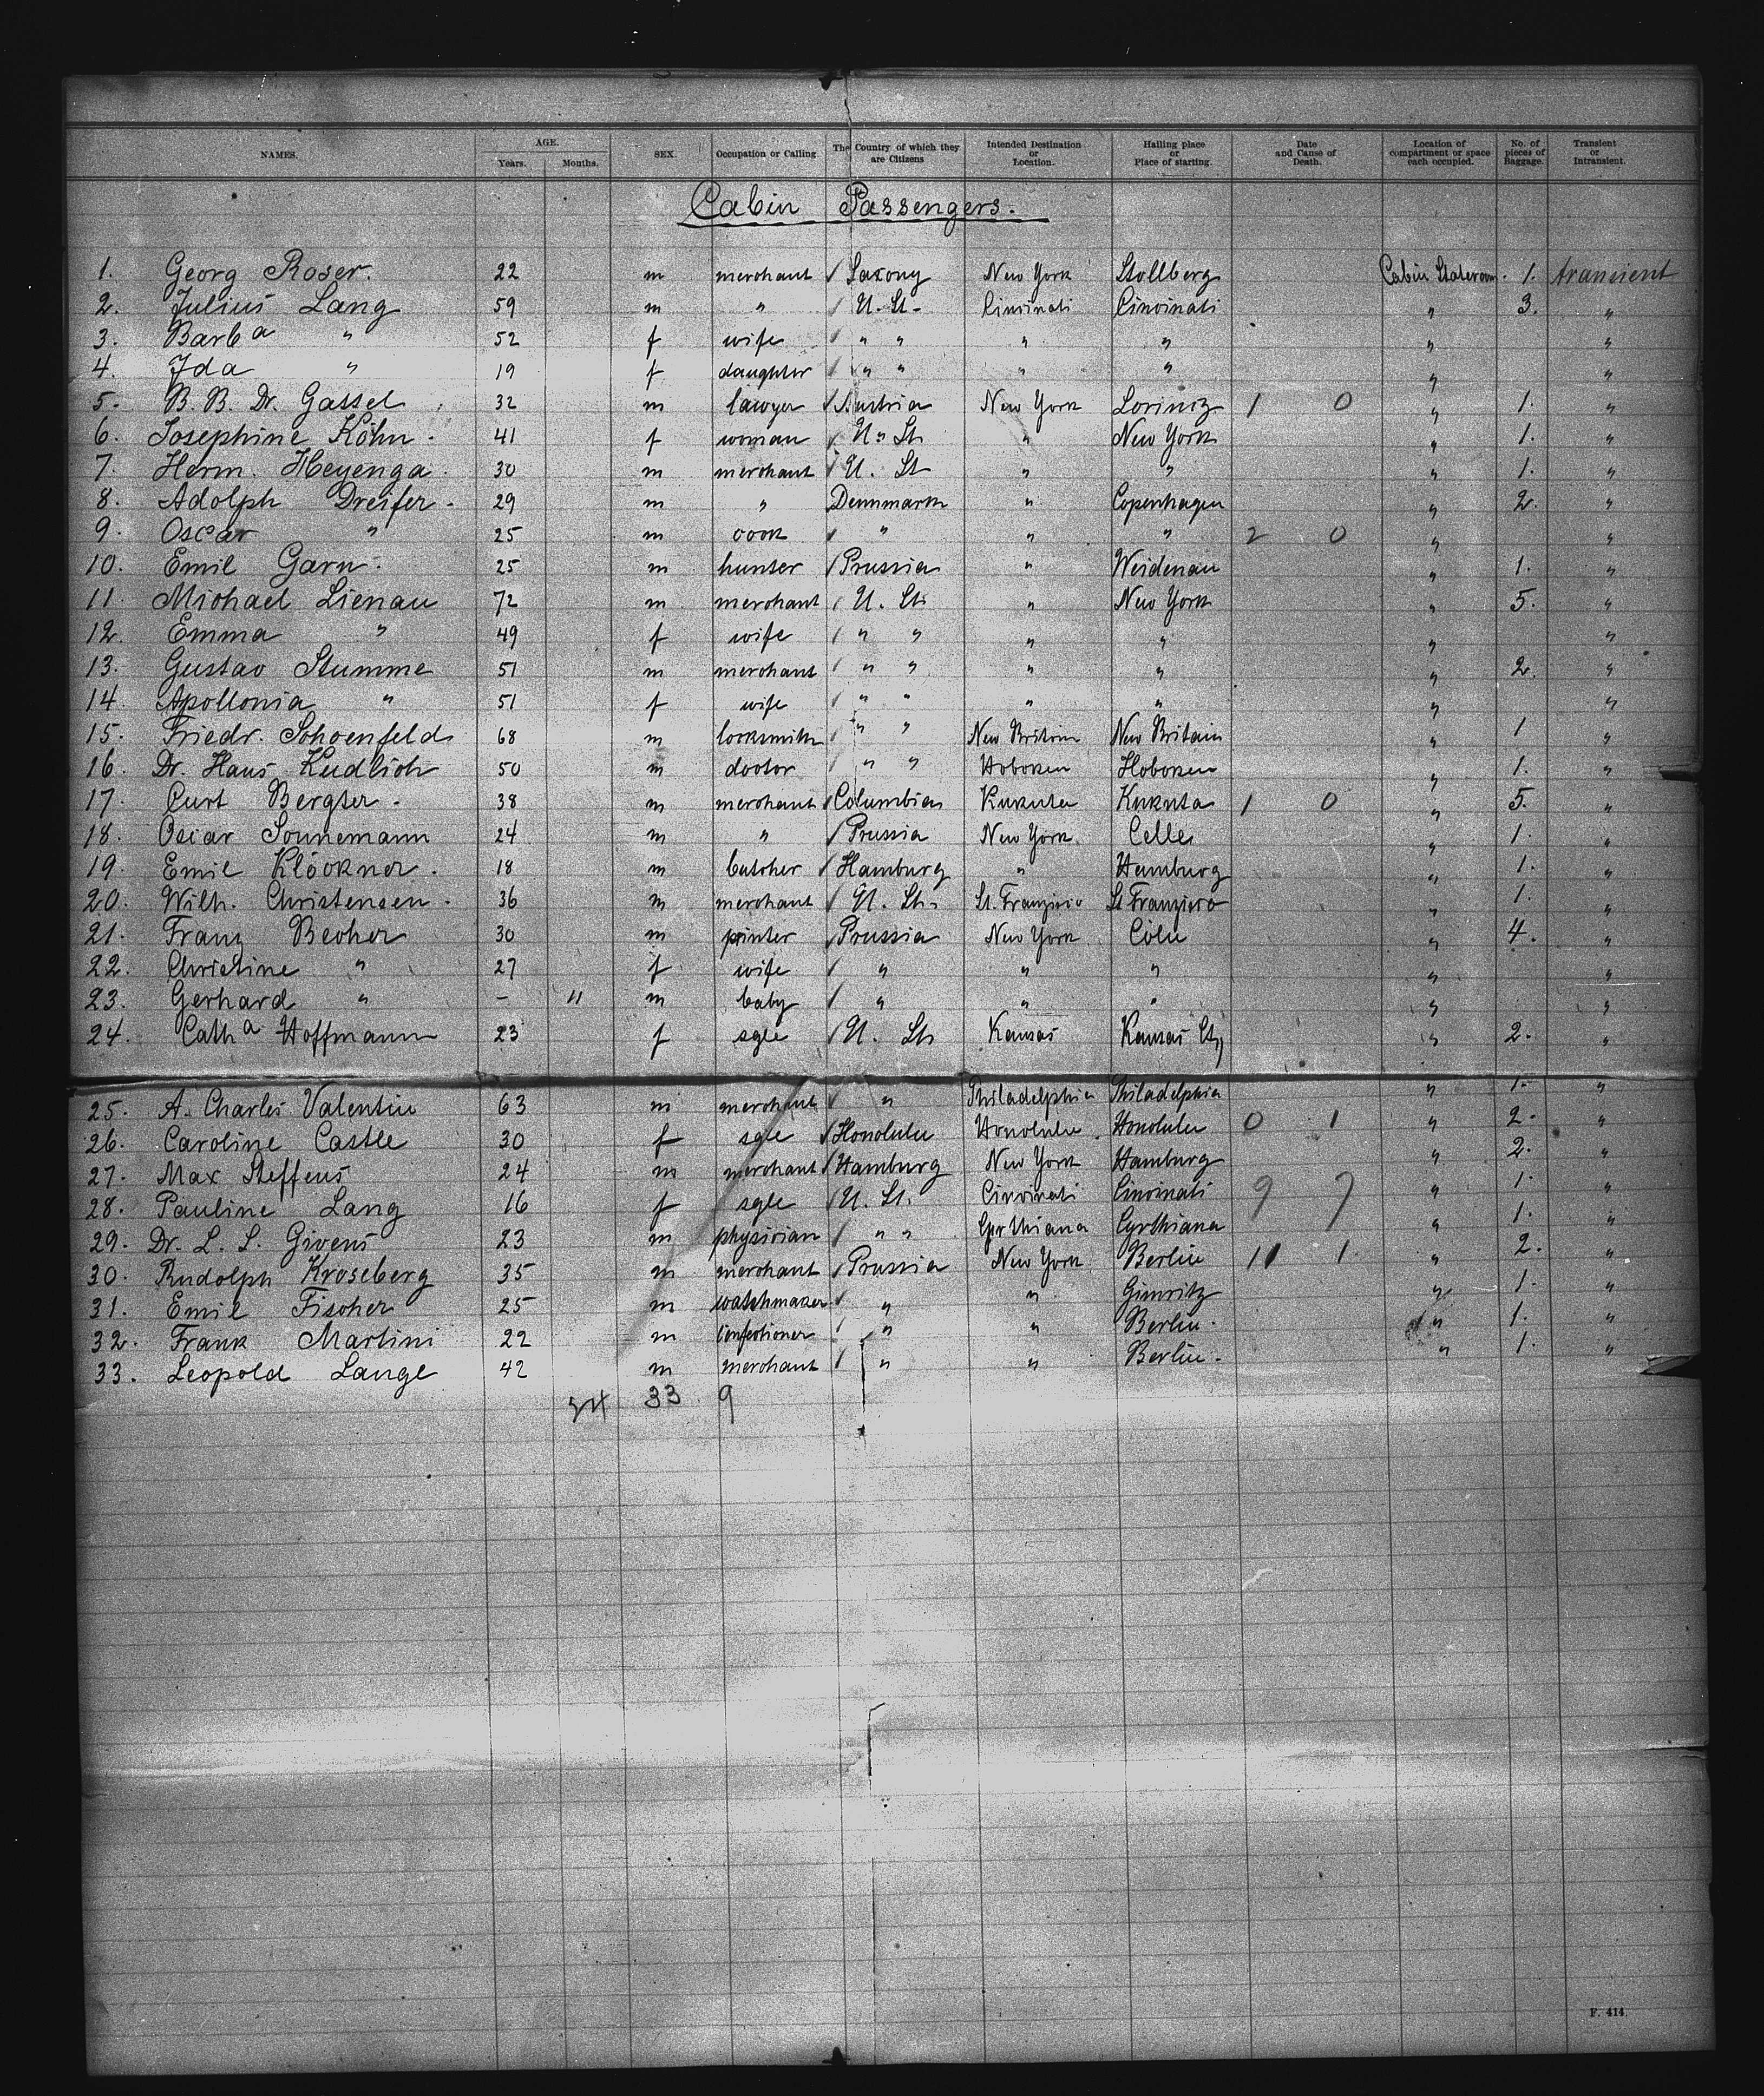 NAMES. AGE. Years. Months. SEX. Occupation or Calling. The Country of which they are Citizens Intended Destination or Location. Hailing place or Place of starting. Date and Cause of Death. Location of compartment or space each occupied. No. of pieces of Baggage. Transient or Intransient.
Cabin Passengers.
1. Georg Roser. 22 m merchant / Saxony New York Stollberg Cabin Stateroom. 1. transient
2. Julius Lang 59 m " / U. St. Cincinati Cincinati " 3. "
3. Barba " 52 f wife / " " " " " "
4. Ida " 19 f daughter / " " " " " "
5. B. B. Dr. Gassel 32 m lawyer / Austria New York 1 0 " 1. "
6. Josephine Köhn. 41 f woman / U. St. " New York " 1. "
7. Herm. Heyenga. 30 m merchant / U. St " " " 1. "
8. Adolph Dreifer. 29 m " Dennmark " Copenhagen " 2. "
9. Oscar " 25 m cook / " " " 2 0 " "
10. Emil Garn. 25 m hunter / Prussia " Weidenau " 1. "
11. Michael Lienau 72 m merchant / U. St. " New York " 5. "
12. Emma " 49 f wife / " " " " " "
13. Gustav Stumme 51 m merchant / " " " " " 2. "
14. Apollonia " 51 f wife / " " " " " "
15. Friedr. Schoenfeld 68 m locksmith / " " New Britain New Britain " 1 "
16. Dr. Hans Kudlich 50 m doctor / " " Hoboken Hoboken " 1. "
17. Curt Bergter. 38 m merchant / Columbia Kukuta Kukuta 1 0 " 5. "
18. Oscar Sonnemann 24 m " / Prussia New York. Celle " 1. "
19. Emil Klöckner. 18 m butcher / Hamburg " Hamburg " 1. "
20. Wilh. Christensen. 36 m merchant / U. St. St. Franzisco St Franzisco " 1. "
21. Franz Becher 30 m painter / Prussia New York Cöln " 4. "
22. Christine " 27 f wife / " " " " "
23. Gerhard " - 11 m baby / " " " " "
24. Catha Hoffmann 23 f sgle / U. St. Kansas Kansas Cty " 2. "
25. A. Charles Valentin 63 m merchant / " Philadelphia Philadelphia " 1. "
26. Caroline Castle 30 f sgle / Honolulu Honolulu. Honolulu 0 1 " 2. "
27. Max Steffens 24 m merchant / Hamburg New York Hamburg " 2. "
28. Pauline Lang 16 f sgle / U. St. Cincinati Cincinati 9 7 " 1. "
29. Dr. L. S. Givens 23 m physician / " " Cyrthiana Cyrthiana " 1. "
30. Rudolph Kroseberg 35 m merchant / Prussia New York Berlin 11 1 " 2. "
31. Emil Fischer 25 m watchmaker / " " Gimritz " 1. "
32. Frank Martini 22 m confectioner / " " Berlin. " 1. "
33. Leopold Lange 42 m merchant / " " Berlin. " 1. "
24 33. 9
F. 414.